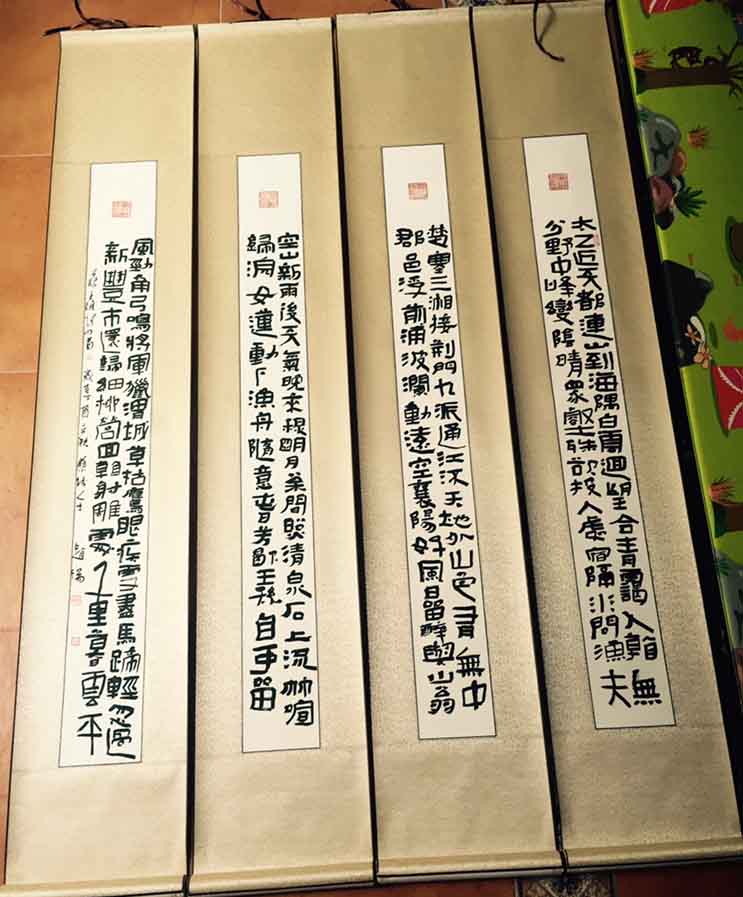 太乙近天都連山到海隅白雲迴望合青靄入看無
分野中峰變陰晴眾壑殊欲投人處宿隔水問漁夫
楚塞三湘接荊門九派通江流天地外山色有無中
郡邑浮前浦波瀾動遠空襄陽好風日留醉與山翁
空山新雨後天氣晚來秋明月松間照清泉石上流竹喧
歸浣女蓮動下漁舟隨意春芳歇王孫自可留
風勁角弓鳴將軍獵渭城草枯鷹眼疾雪盡馬蹄輕忽過
新豐市還歸細柳營回看射雕處千里暮雲平